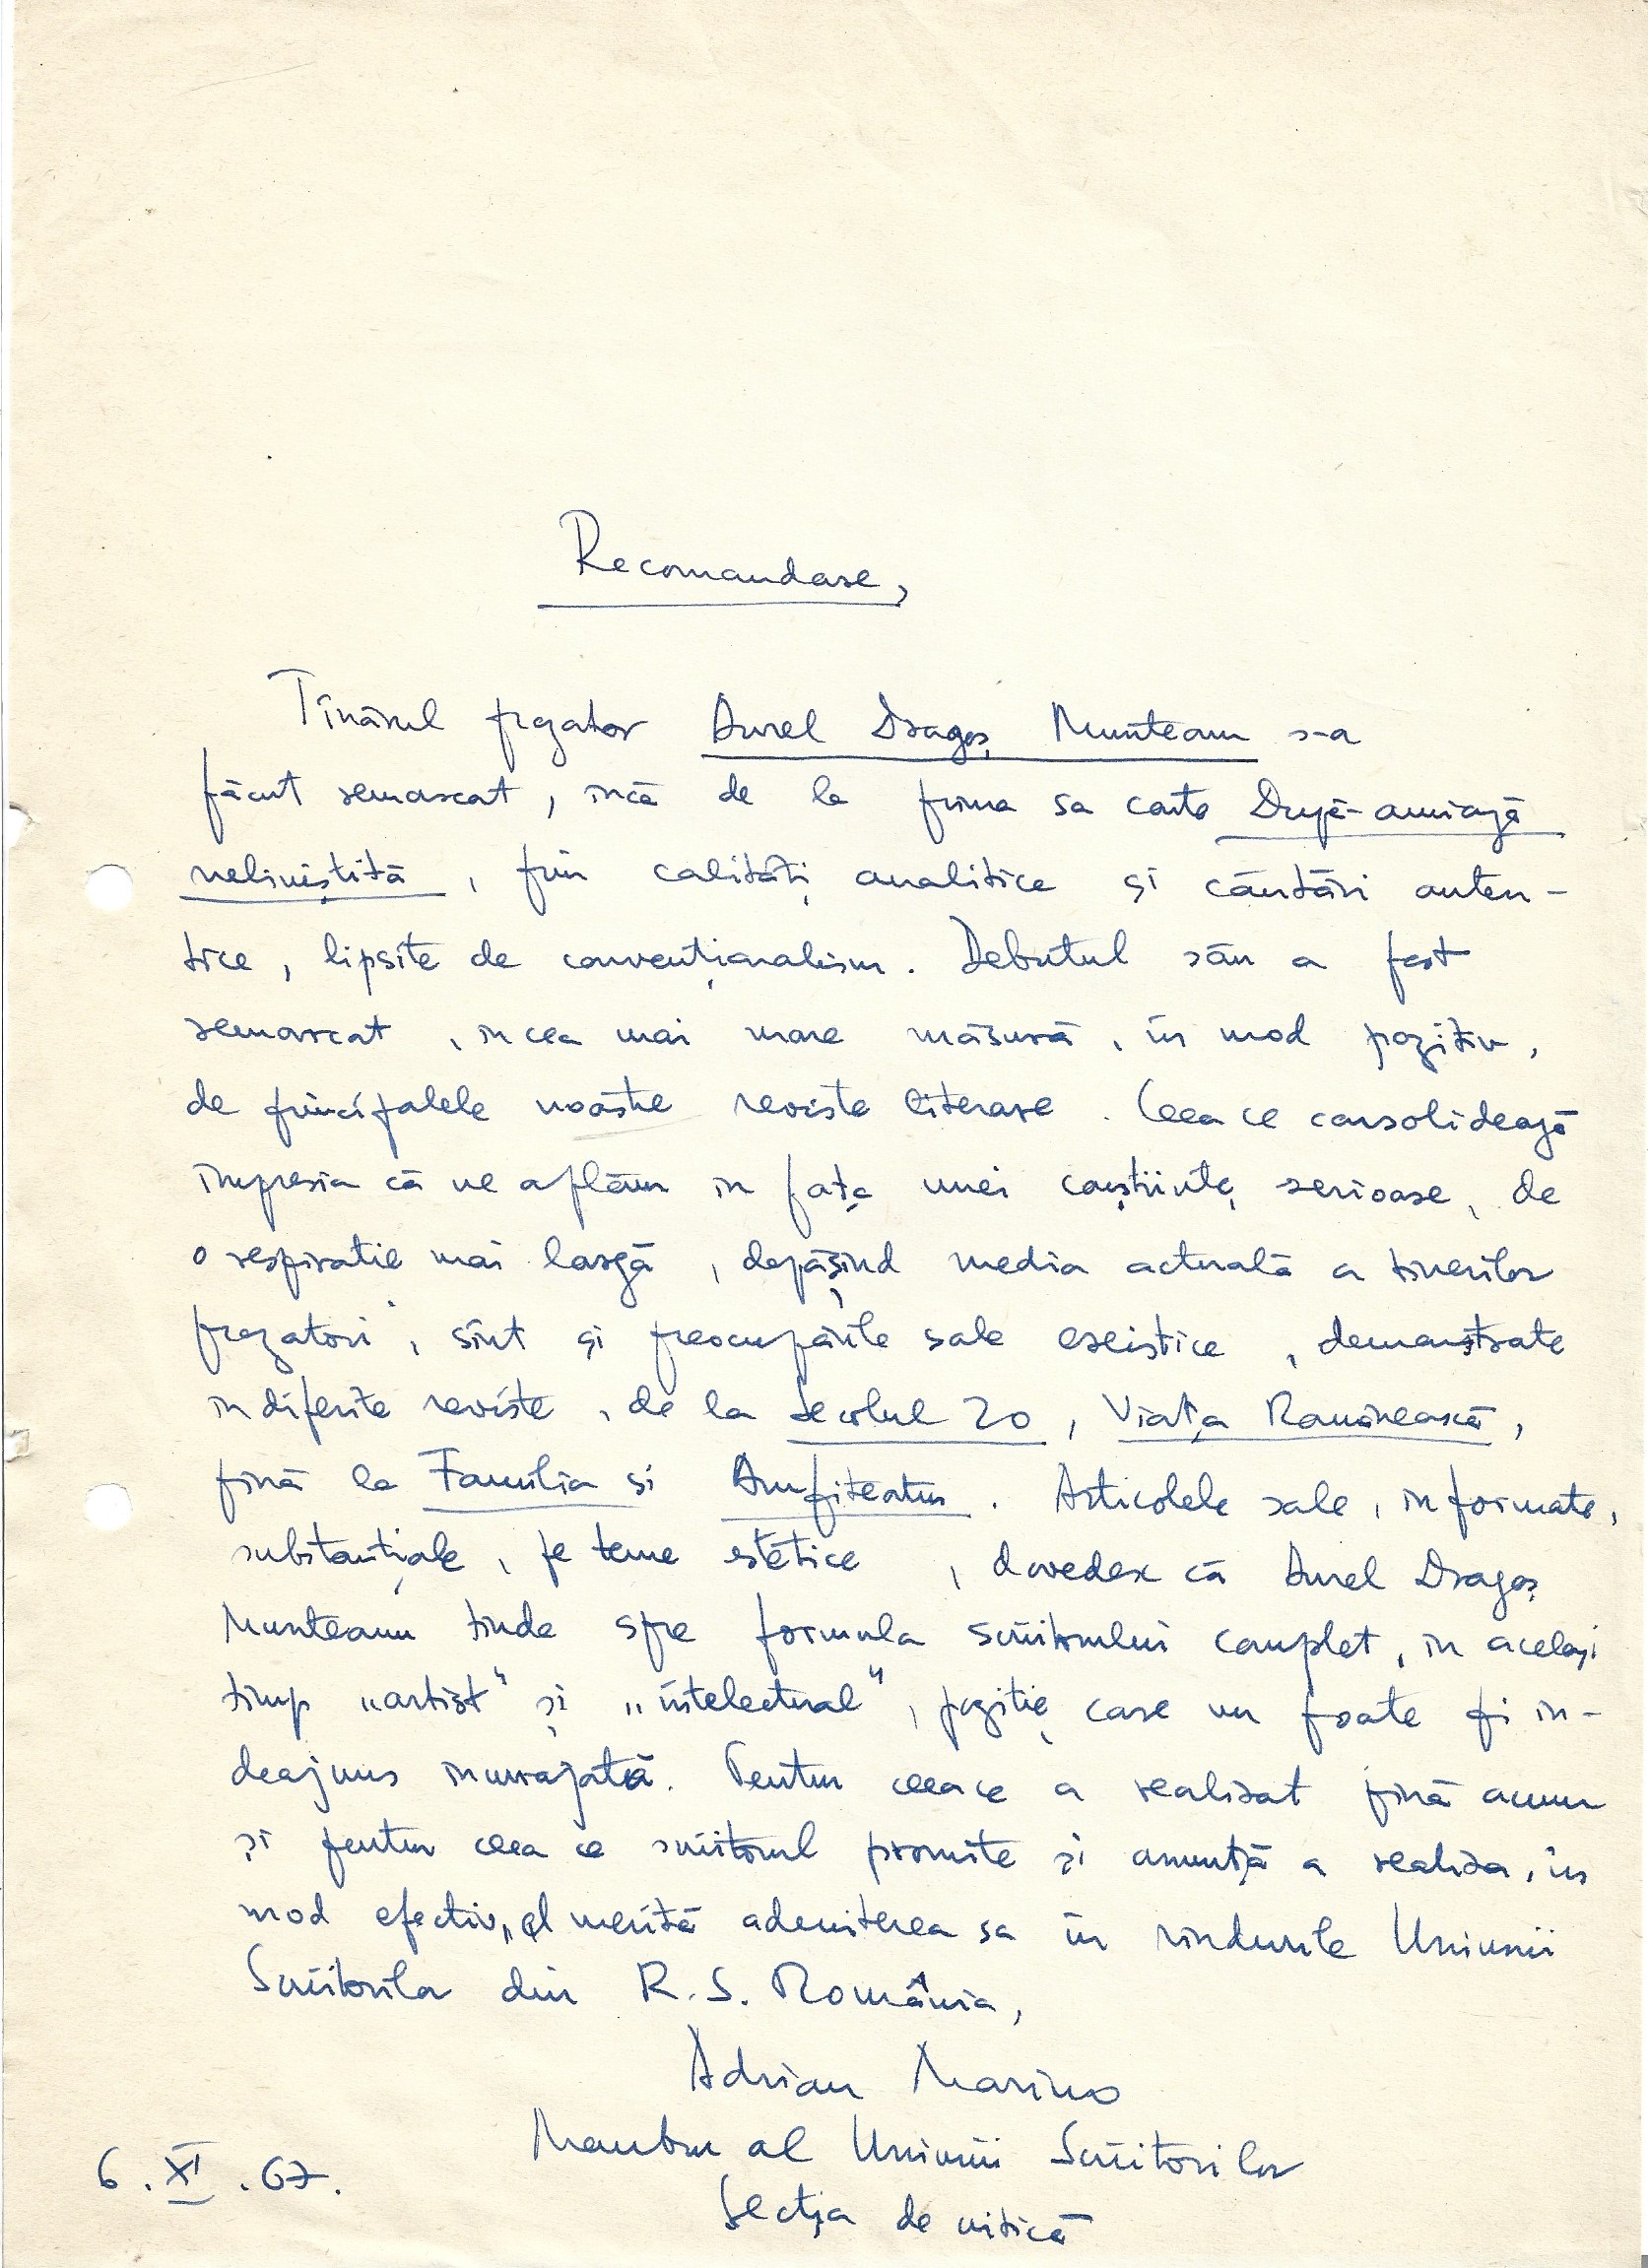 Recomandare,
Tînărul prozator Aurel Dragoş Munteanu s-a
făcut remarcat, încă de la prima sa carte După-amiază
neliniştită, prin calităţi analitice şi căutări auten-
tice, lipsite de convenţionalism. Debutul său a fost
remarcat, in cea mai mare măsură, în mod pozitiv,
de principalele noastre reviste literare. Ceea ce consolidează
impresia că ne aflăm in faţa unei conştiinţe serioase, de
o respiratie mai largă, depăşind media actuală a tinerilor
prozatori, sînt şi preocupările sale eseistice, demonstrate
in diferite reviste, de la Secolul 20, Viaţa Românească,
pînă la Familia si Amfiteatru. Articolele sale, informate,
substanţiale, pe teme estetice, dovedesc că Aurel Dragoş
Munteanu tinde spre formula scriitorului complet, in acelaşi
timp „artist" şi „intelectual", poziţie care nu poate fi in-
deajuns incurajată. Pentru ceea ce a realizat pînă acum
şi pentru ceea ce scriitorul promite şi anunţă a realiza, în
mod efectiv, el merită admiterea sa în rîndurile Uniunii
Scriitorilor din R. S. România,
Adrian Marino
Membru al Uniunii Scriitorilor
6. XI. 67.
Secţia de critică